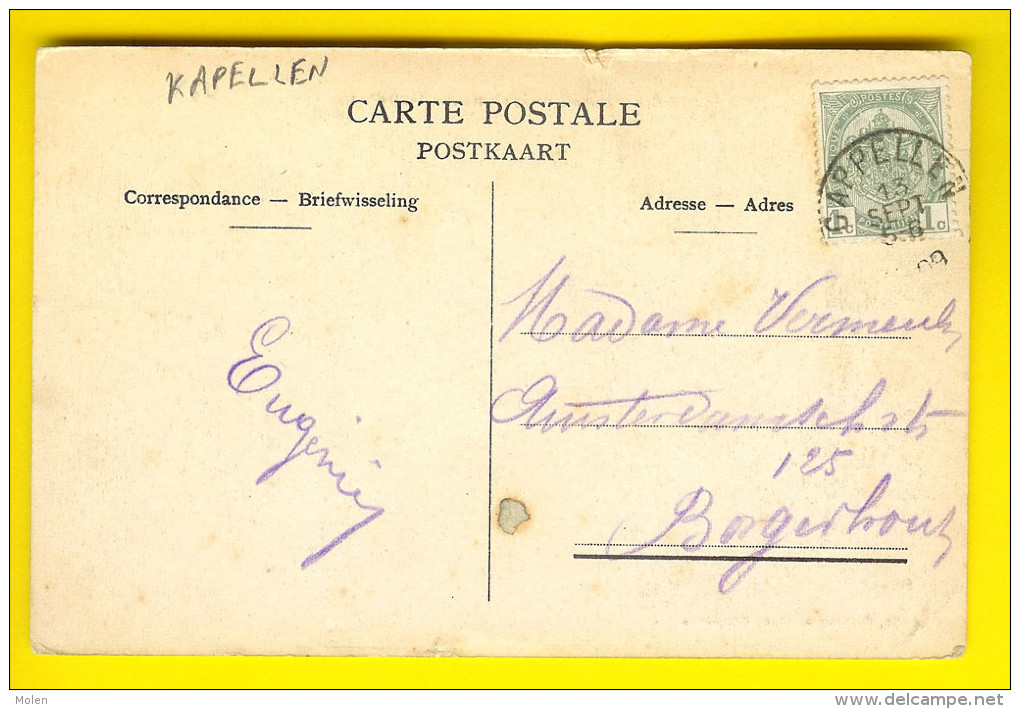 KAPELLEN
CARTE POSTALE
POSTKAART
Correspondance — Briefwisseling
Adresse — Adres
POSTES
1c 1c
CAPPELLEN
13
SEPT
5-6
09
Madame Vermeulen
Amsterdamsch str
125
Borgerhout
Eugénie
Molen
www.delcampe.net